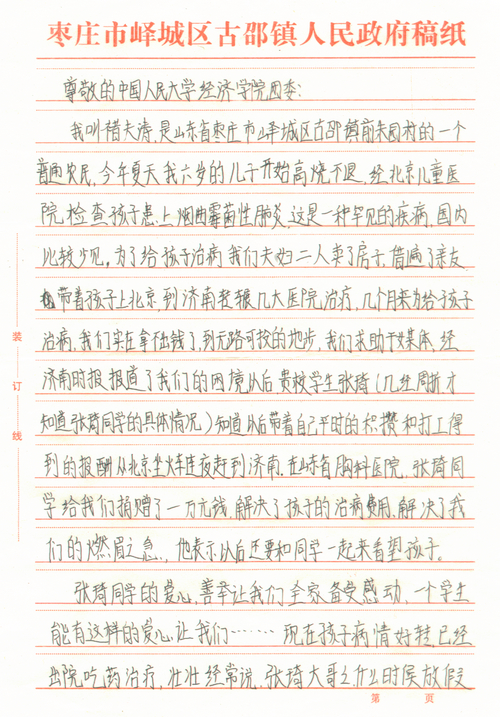 枣庄市峄城区古邵镇人民政府稿纸
尊敬的中国人民大学经济学院团委:
我叫褚夫涛,是山东省枣庄市峄城区古邵镇前朱园村的一个
普通农民,今年夏天我六岁的儿子开始高烧不退,经北京儿童医
院检查孩子患上烟曲霉菌性肺炎,这是一种罕见的疾病,国内
比较少见,为了给孩子治病我们夫妇二人卖了房子,借遍了亲友
带着孩子上北京,到济南找几大医院治疗,几个月来为给孩子
治病,我们实在拿不出钱了,到无路可投的地步,我们求助于媒体,经
济南时报报道了我们的困境以后,贵校学生张琦(几经周折才
知道张琦同学的具体情况)知道以后带着自己平时的积攒和打工得
到的报酬从北京坐火车连夜赶到济南.在山东省胸科医院,张琦同
学给我们捐赠了一万元钱,解决了孩子的治病费用,解决了我
们的燃眉之急,他表示以后还要和同学一起来看望孩子。
张琦同学的爱心,善举让我们全家备受感动,一个学生
能有这样的爱心,让我们……现在孩子病情好转已经
出院吃药治疗,壮壮经常说,张琦大哥哥什么时侯放假
装
订
线
第 页